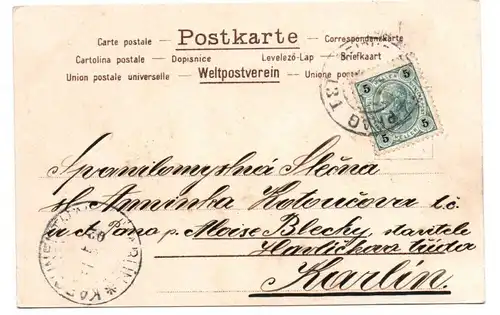 Carte postale — Postkarte — Correspondenzkarte
Cartolina postale — Dopisnice Levelező-Lap — Briefkaart
Union postale universelle — Weltpostverein — Unione
5 5
5 5
Spanilomyslná Slečna
sl. Aninka Kotoučova t.č.
u ct. Pana p. Moise Blecky, stavitele
Havličkova třída
Karlín.